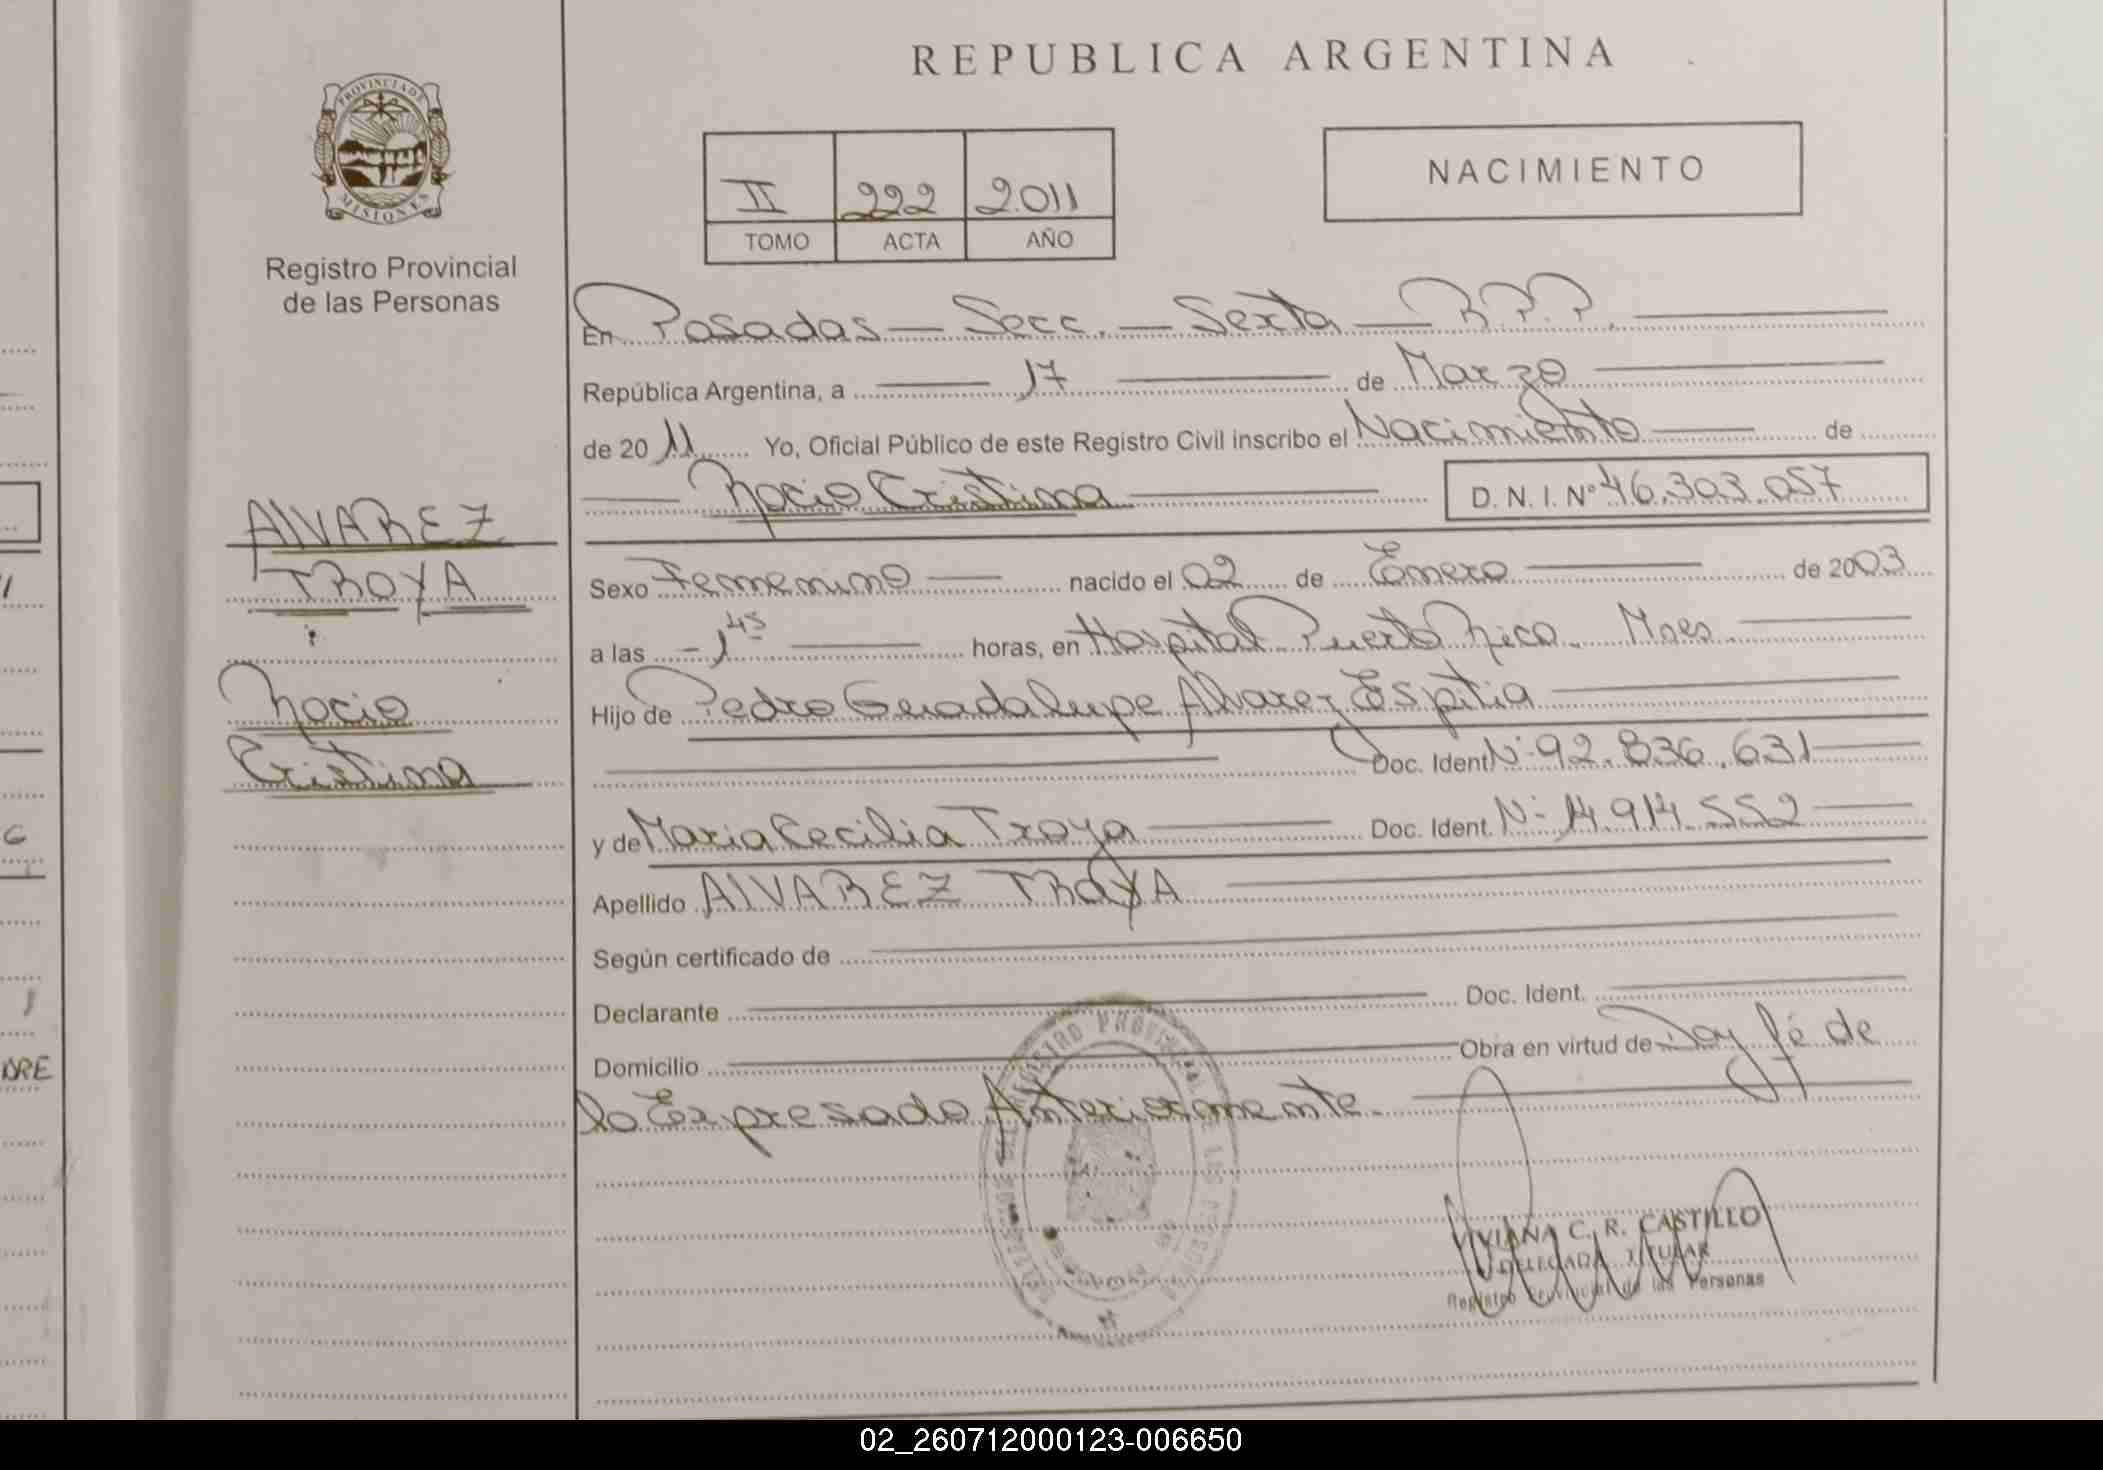 REPUBLICA ARGENTINA
PROVINCIA DE
MISIONES
Registro Provincial
de las Personas
II 222 2011
TOMO ACTA AÑO
NACIMIENTO
En Posadas — Secc. — Sexta — R.P.P.
República Argentina, a — 17 — de Marzo —
de 2011 Yo, Oficial Público de este Registro Civil inscribo el Nacimiento — de
— Rocio Cristina — D. N. I. Nº 46.303.057
ALVAREZ
TROYA
Rocio
Cristina
Sexo Femenino — nacido el 02 de Enero — de 2003
a las - 1 45 — horas, en Hospital Puerto Rico. Mnes —
Hijo de Pedro Guadalupe Alvarez Espitia —
Doc. Ident Nº 92.836.631 —
y de Maria Cecilia Troya — Doc. Ident. Nº 14.914.552 —
Apellido ALVAREZ TROYA —
Según certificado de —
Declarante — Doc. Ident. —
Domicilio — Obra en virtud de Doy fé de
lo Expresado Anteriormente. —
REGISTRO PROVINCIAL DE LAS PERSONAS
VIVIANA C. R. CASTILLO
DELEGADA TITULAR
Registro Provincial de las Personas
DRE
02_260712000123-006650